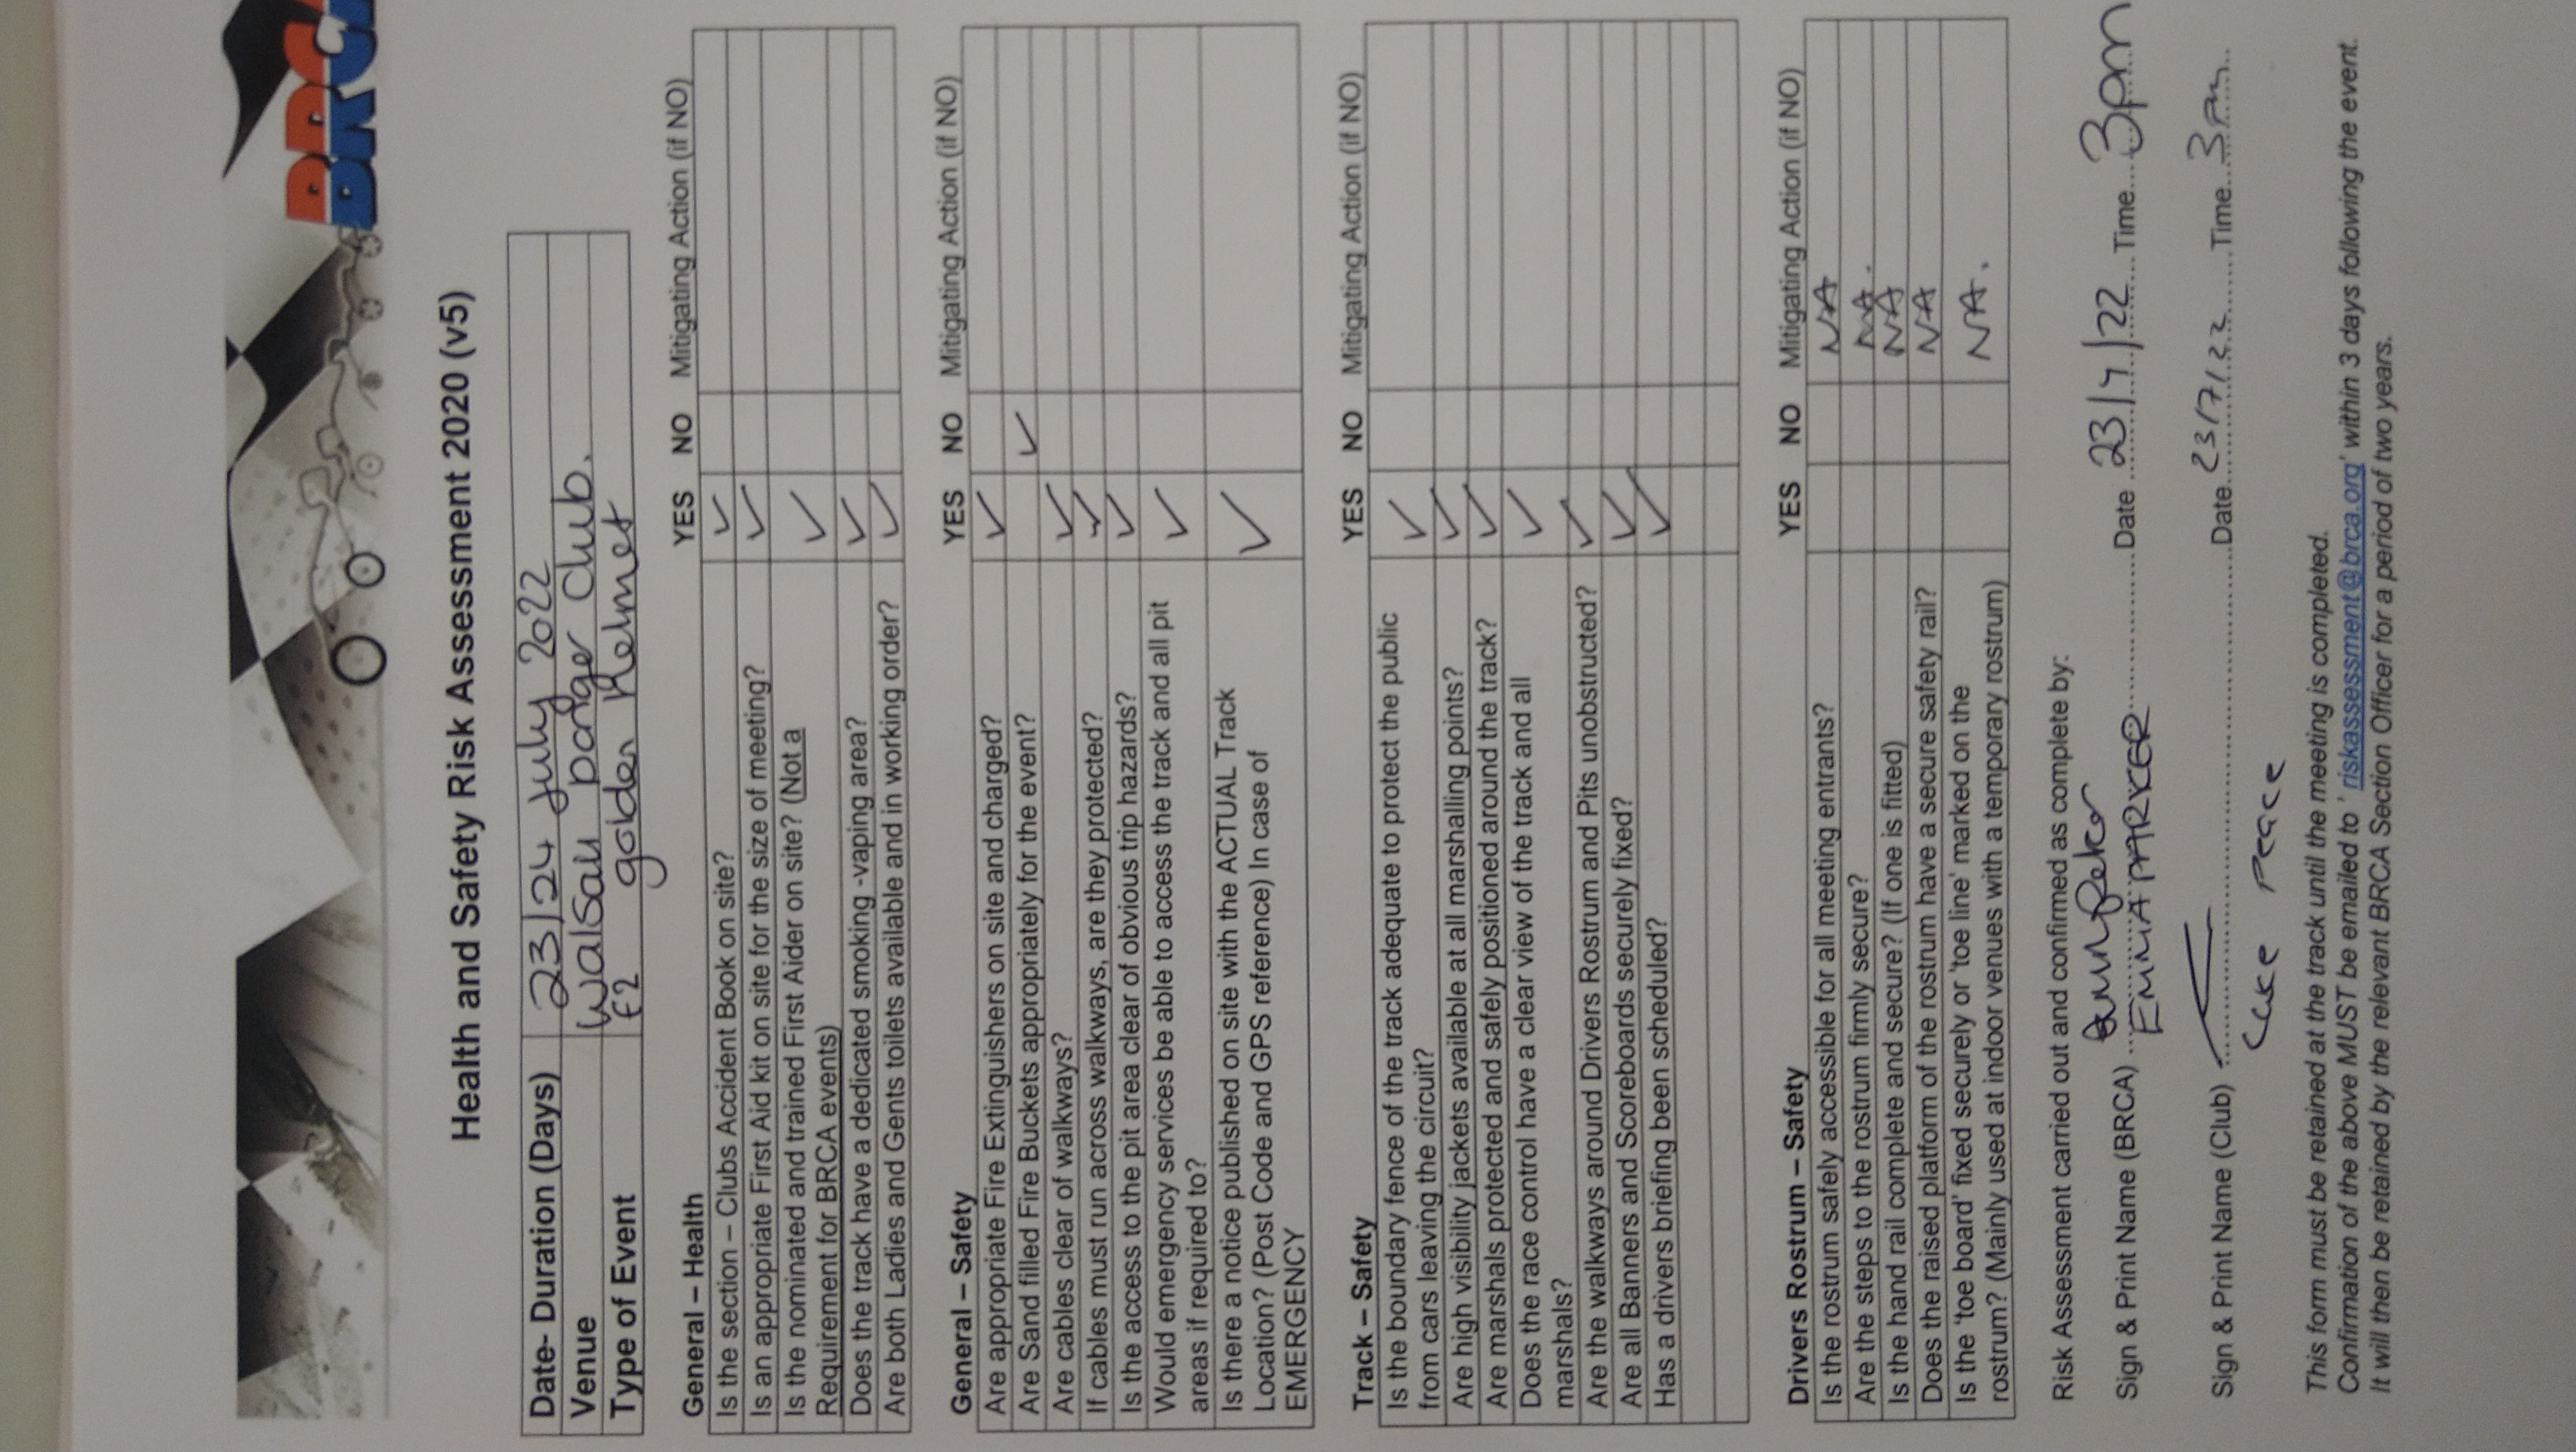 BRCA
Health and Safety Risk Assessment 2020 (v5)
Date- Duration (Days) 23/24 July 2022
Venue Walsall ponger Club.
Type of Event E2 golden Helmet
General – Health YES NO Mitigating Action (if NO)
Is the section – Clubs Accident Book on site? ✓
Is an appropriate First Aid kit on site for the size of meeting? ✓
Is the nominated and trained First Aider on site? (Not a ✓
Requirement for BRCA events)
Does the track have a dedicated smoking -vaping area? ✓
Are both Ladies and Gents toilets available and in working order? ✓
General – Safety YES NO Mitigating Action (if NO)
Are appropriate Fire Extinguishers on site and charged? ✓
Are Sand filled Fire Buckets appropriately for the event? ✓
Are cables clear of walkways? ✓
If cables must run across walkways, are they protected? ✓
Is the access to the pit area clear of obvious trip hazards? ✓
Would emergency services be able to access the track and all pit ✓
areas if required to?
Is there a notice published on site with the ACTUAL Track ✓
Location? (Post Code and GPS reference) In case of
EMERGENCY
Track – Safety YES NO Mitigating Action (if NO)
Is the boundary fence of the track adequate to protect the public ✓
from cars leaving the circuit?
Are high visibility jackets available at all marshalling points? ✓
Are marshals protected and safely positioned around the track? ✓
Does the race control have a clear view of the track and all ✓
marshals?
Are the walkways around Drivers Rostrum and Pits unobstructed? ✓
Are all Banners and Scoreboards securely fixed? ✓
Has a drivers briefing been scheduled? ✓
Drivers Rostrum – Safety YES NO Mitigating Action (if NO)
Is the rostrum safely accessible for all meeting entrants? NA
Are the steps to the rostrum firmly secure? NA.
Is the hand rail complete and secure? (If one is fitted) NA
Does the raised platform of the rostrum have a secure safety rail? NA
Is the 'toe board' fixed securely or 'toe line' marked on the NA.
rostrum? (Mainly used at indoor venues with a temporary rostrum)
Risk Assessment carried out and confirmed as complete by:
Sign & Print Name (BRCA) EMMA PARKER Date 23/7/22 Time 3pm
Sign & Print Name (Club) Date 23/7/22 Time 3pm
Luke Peace
This form must be retained at the track until the meeting is completed.
Confirmation of the above MUST be emailed to ' riskassessment@brca.org' within 3 days following the event.
It will then be retained by the relevant BRCA Section Officer for a period of two years.